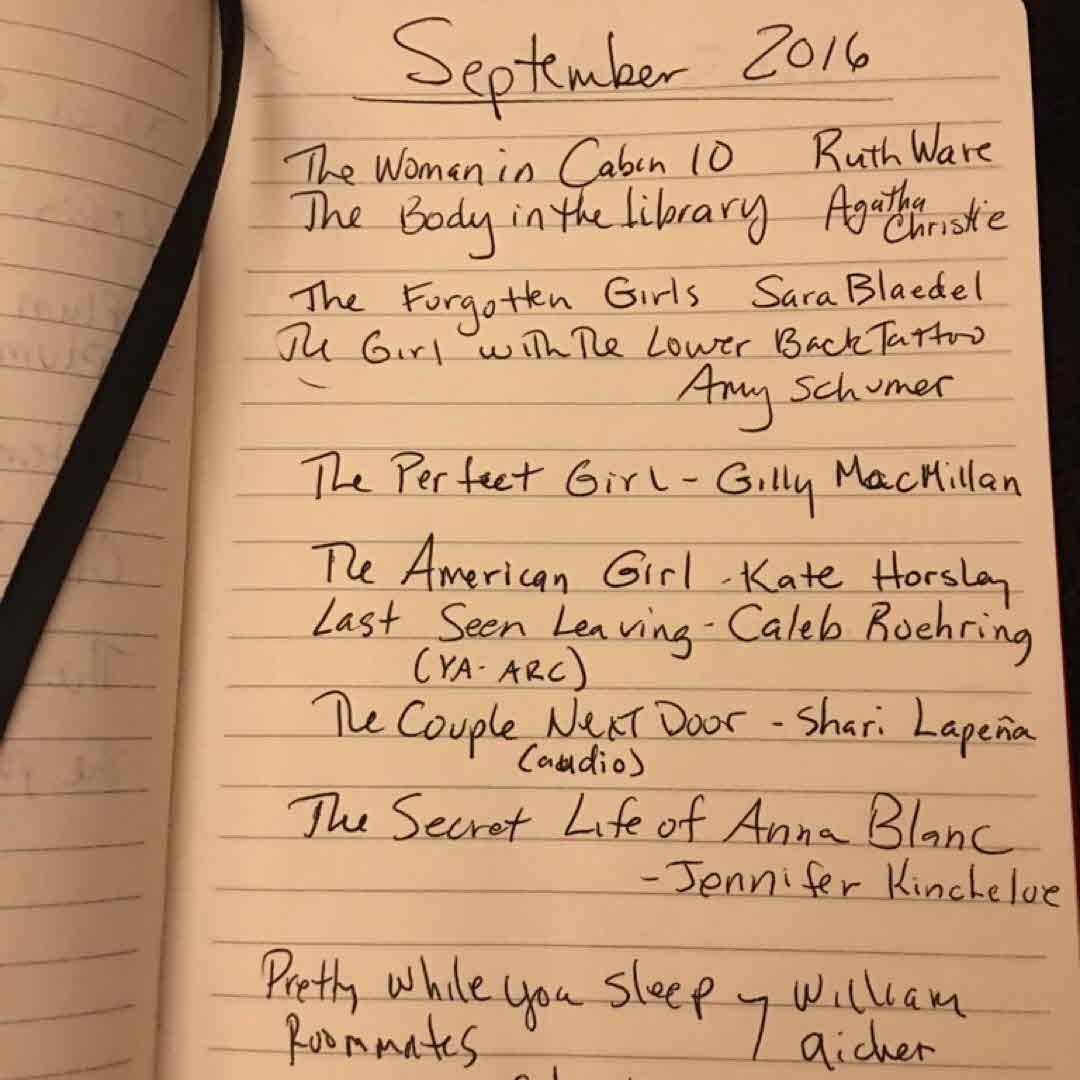 September 2016
The Woman in Cabin 10 Ruth Ware
The Body in the Library Agatha Christie
The Forgotten Girls Sara Blaedel
The Girl with The Lower Back Tattoo
Amy Schumer
The Perfect Girl - Gilly MacMillan
The American Girl - Kate Horsley
Last Seen Leaving - Caleb Roehring
(YA - ARC)
The Couple Next Door - Shari Lapeña
(audio)
The Secret Life of Anna Blanc
- Jennifer Kincheloe
Pretty While you Sleep William
Roommates Aicher